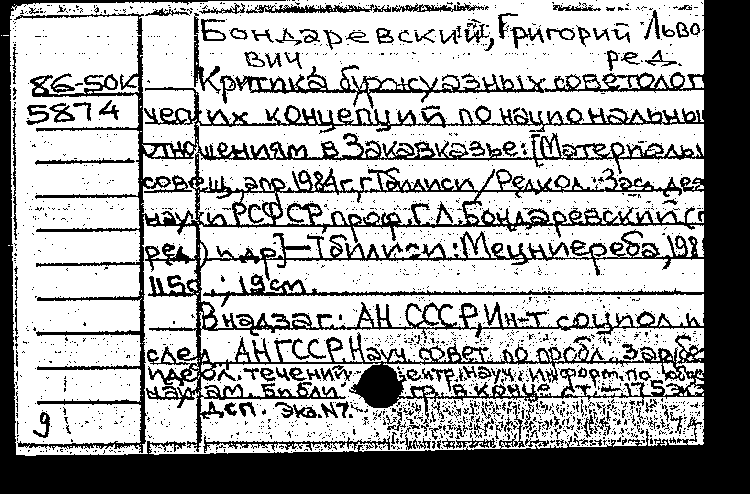 Бондаревский, Григорий Льво
вич, ред.
86-50К Критика буржуазных советолог
5874 ческих концепций по национальны
отношениям в Закавказье: [Материалы
совещ., апр. 1984 г., г. Тбилиси / Редкол.: Засл. дея
науки РСФСР, проф. Г.Л. Бондаревский (
ред.) и др.] — Тбилиси: Мецниереба, 198
115с.; 19см.
В надзаг.: АН СССР, Ин-т социол. и
след., АН ГССР. Науч. совет по пробл. заруб
идеол. течений, центр. науч. информ. по общ
наукам. Библи гр. в конце ст. – 175 экз
Д.с.п. Экз. N7.
9